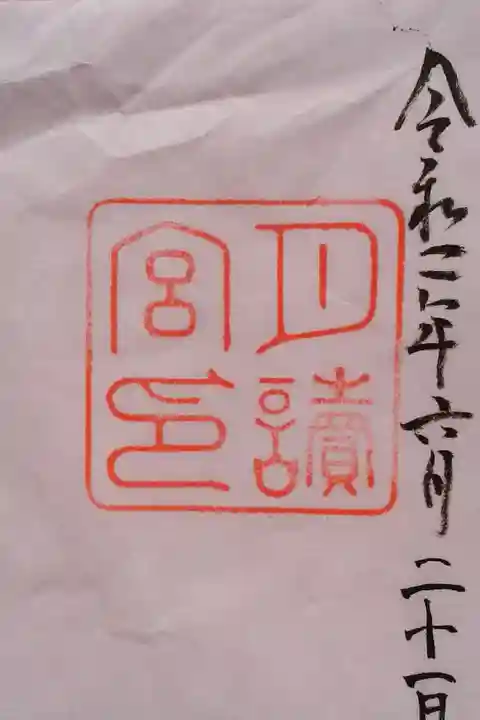 令和二年六月二十一日
月讀
宮印